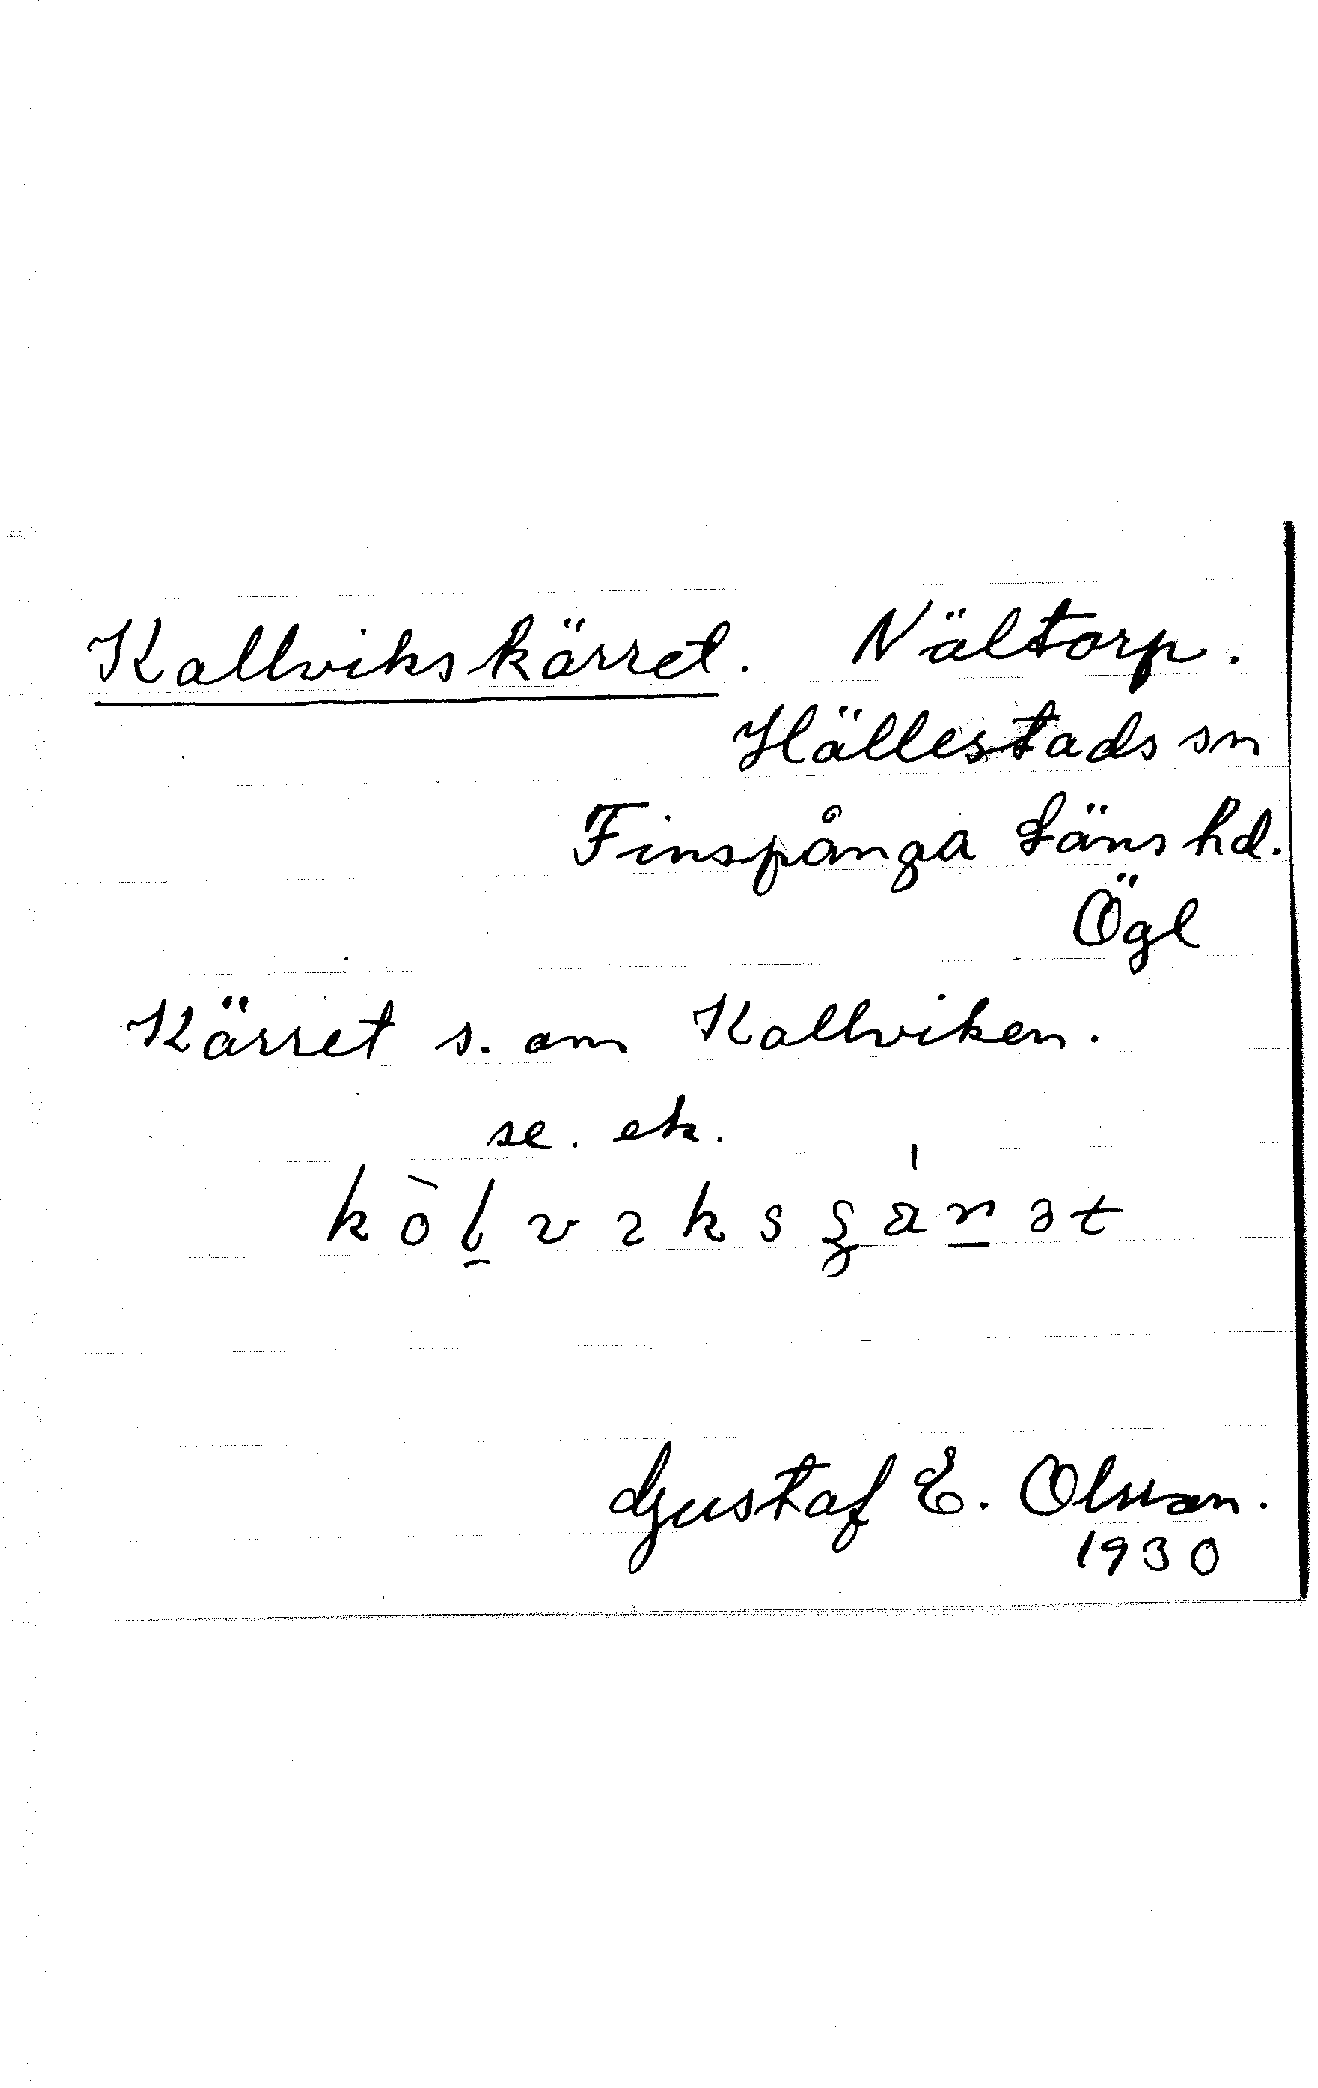 Kallvikskärret. Nältorp.
Hällestads sn
Finspånga Läns hd.
Ögl
Kärret s. om Kallviken.
se. ek.
Gustaf E. Olsson.
1930